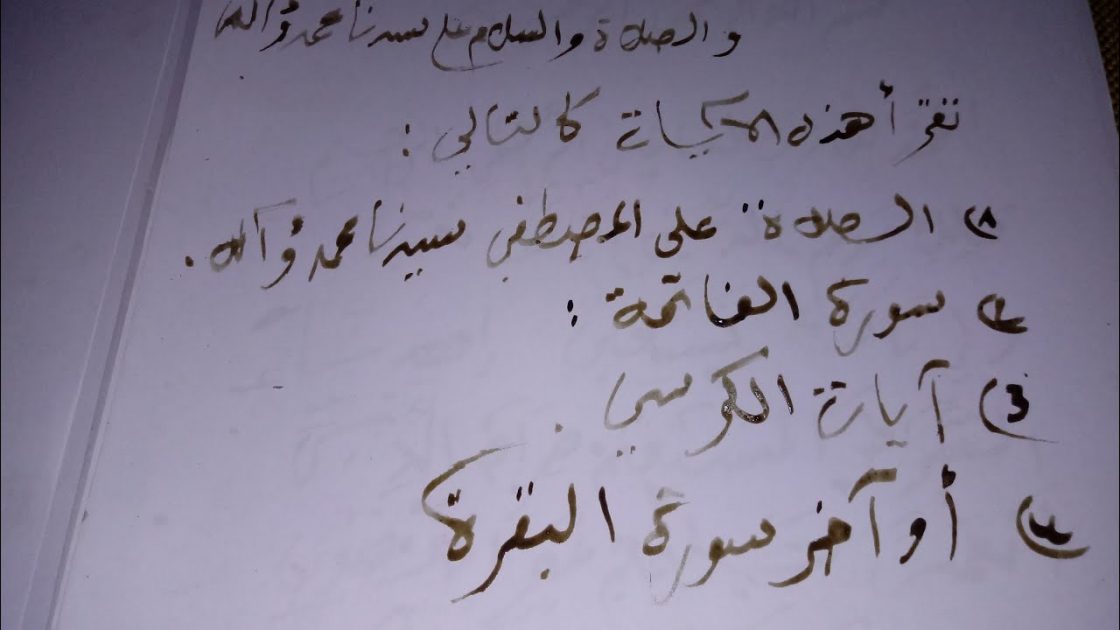 والصلاة والسلام على سيدنا محمد وآله
تقرأ هذه الآيات كالتالي :
1) الصلاة على المصطفى سيدنا محمد وآله .
2) سورة الفاتحة :
3) آيات الكرسي .
4) أو آخر سورة البقرة